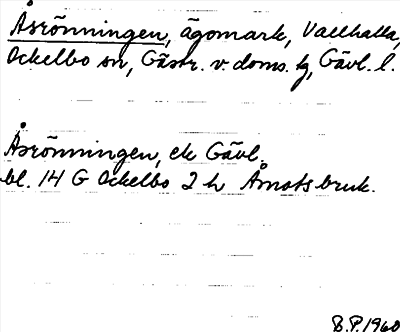 Åsrönningen, ägomark, Vallhalla,
Ockelbo sn, Gästr. v. doms. tg, Gävl. l.
Åsrönningen, ek Gävl.
bl. 14 G Ockelbo 2 h Åmots bruk.
B.P. 1960